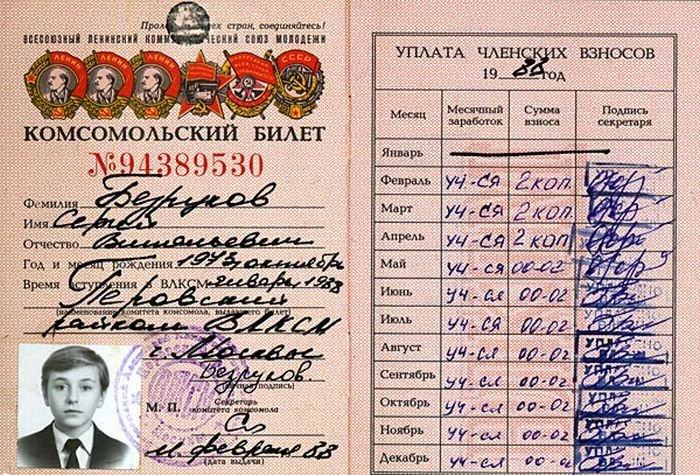 Пролетарии всех стран, соединяйтесь!
ВСЕСОЮЗНЫЙ ЛЕНИНСКИЙ КОММУНИСТИЧЕСКИЙ СОЮЗ МОЛОДЕЖИ
КОМСОМОЛЬСКИЙ БИЛЕТ
№94389530
Фамилия Безруков
Имя Сергей
Отчество Витальевич
Год и месяц рождения 1973, октябрь
Время вступления в ВЛКСМ январь 1988
Перовский
(наименование комитета комсомола, выдавшего билет)
райком ВЛКСМ
г. Москвы
Безруков.
(личная подпись)
М. П. Секретарь
комитета комсомола
11 февраля 88
(дата выдачи)
УПЛАТА ЧЛЕНСКИХ ВЗНОСОВ
19 88 год
Месяц Месячный заработок Сумма взноса Подпись секретаря
Январь
Февраль уч-ся 2 коп.
Март уч-ся 2 коп.
Апрель уч-ся 2 коп.
Май уч-ся 00-02
Июнь уч-ся 00-02
Июль уч-ся 00-02
Август уч-ся 00-02
Сентябрь уч-ся 00-02
Октябрь уч-ся 00-02
Ноябрь уч-ся 00-02
Декабрь уч-ся 00-02